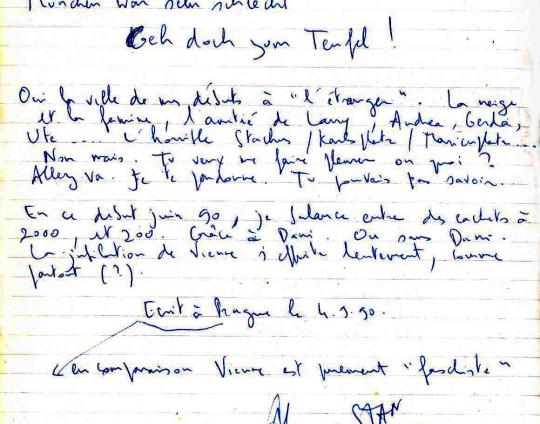 München war sehr schlecht
Geh doch zum Teufel !
Oui la ville de mes débuts à "l'étranger". La neige
et la famine, l'amitié de Lany, Andrea, Gerda,
Ute .... L'horrible Stachus / Karlsplatz / Marienplatz...
Non mais. Tu veux me faire pleurer ou quoi ?
Allez va. Je te pardonne. Tu pouvais pas savoir.
En ce début juin 90, je balance entre des cachets à
2000, et 200. Grâce à Dani. Ou sans Dani.
La de Vienne s'effrite lentement, comme
partout (?).
Ecrit à Prague le 4.9.90.
en comparaison Vienne est purement "fasciste"
STAN